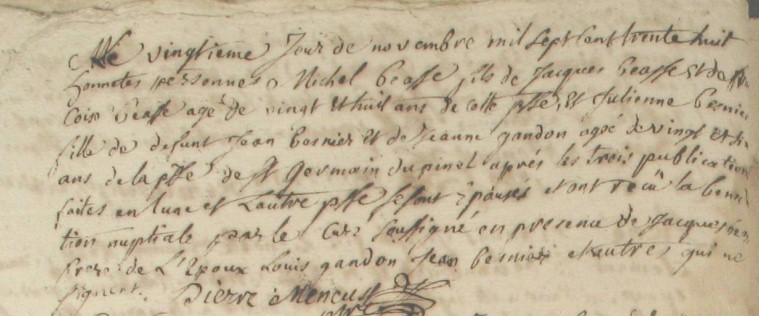 Le vingtieme Jour de novembre mil sept cent trente huit
honnetes personnes Michel beasse fils de Jacques beasse et de fran
coise beasse agé de vingt et huit ans de cette psse, et Julienne besnier
fille de defunt Jean besnier et de Jeanne gandon agée de vingt et six
ans de la psse de St Germain du pinel aprés les trois publication
faites en lune et Lautre psse se sont épousés et ont recu la bened
tion nuptiale par le Curé soussigné en presence de Jacques
frere de L'Epoux Louis gandon Jean besnier et autres qui ne
signent. Pierre